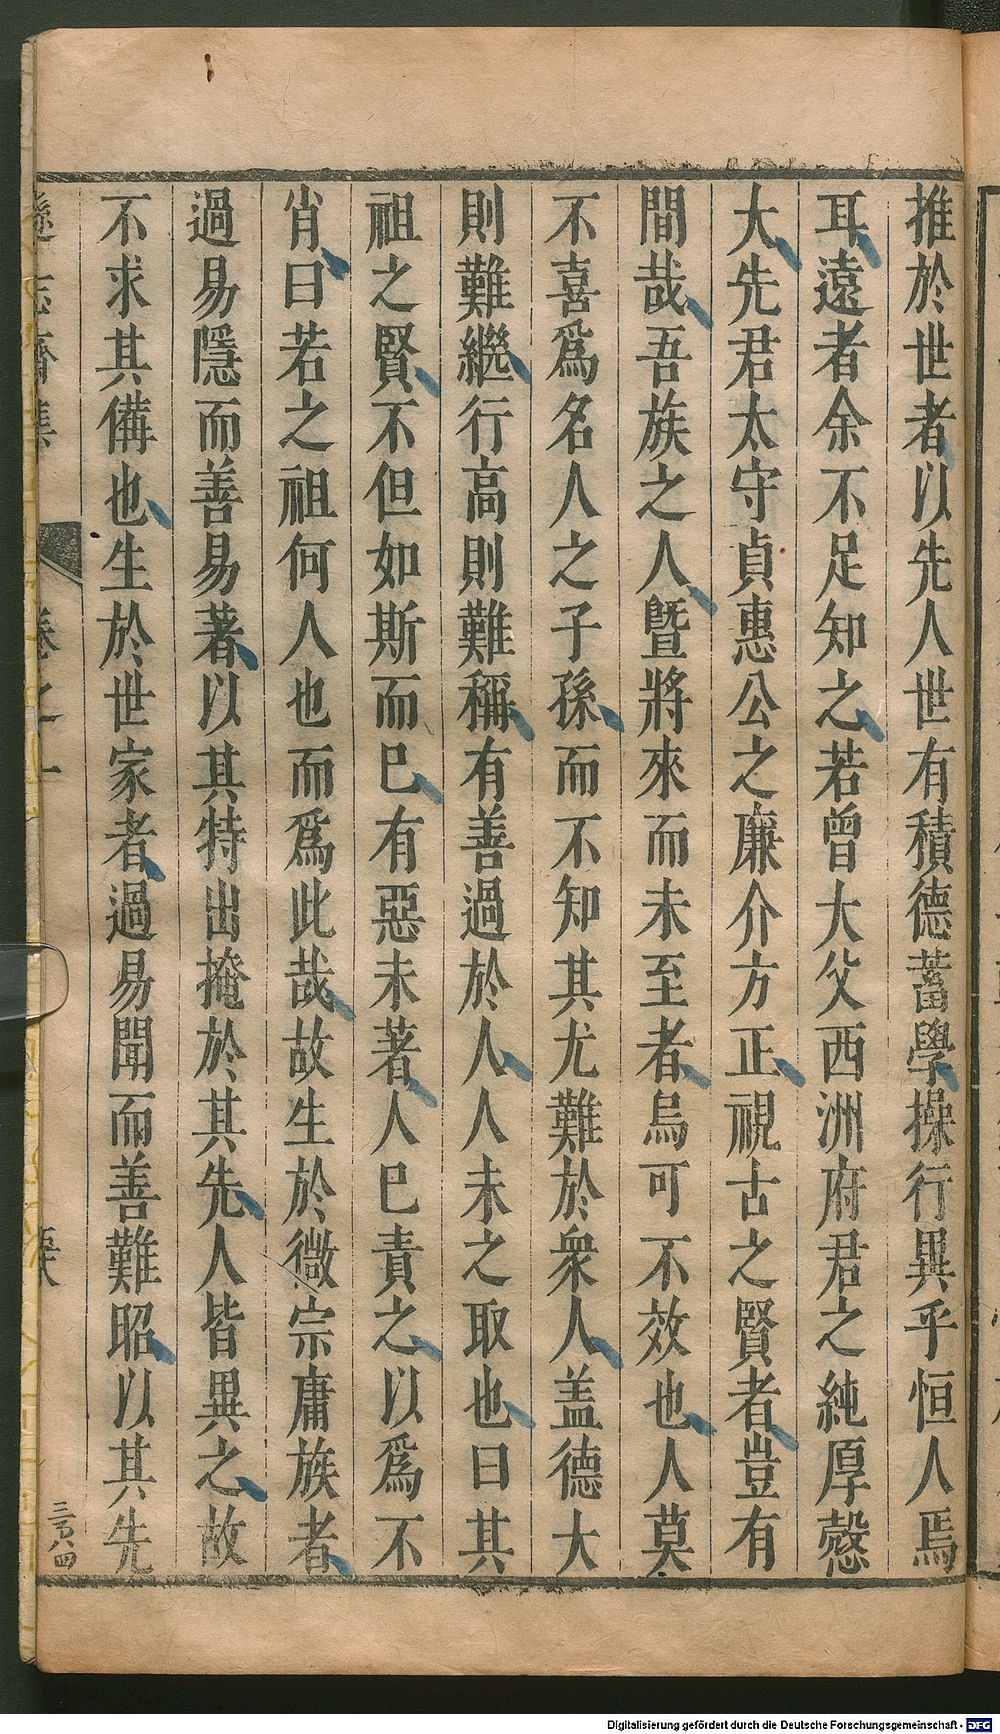 推於世者以先人世有積德蓄學操行異乎恒人焉
耳遠者余不足知之若曾大父西洲府君之純厚慤
大先君太守貞惠公之廉介方正視古之賢者豈有
間哉吾族之人曁將來而未至者烏可不效也人莫
不喜爲名人之子孫而不知其尤難於衆人盖德大
則難繼行高則難稱有善過於人人未之取也曰其
祖之賢不但如斯而巳有惡未著人巳責之以爲不
肖曰若之祖何人也而爲此哉故生於微宗庸族者
過易隱而善易著以其特出掩於其先人皆異之故
不求其備也生於世家者過易聞而善難昭以其先
遜志齋集
卷之一
三百八四
Digitalisierung gefördert durch die Deutsche Forschungsgemeinschaft - DFG